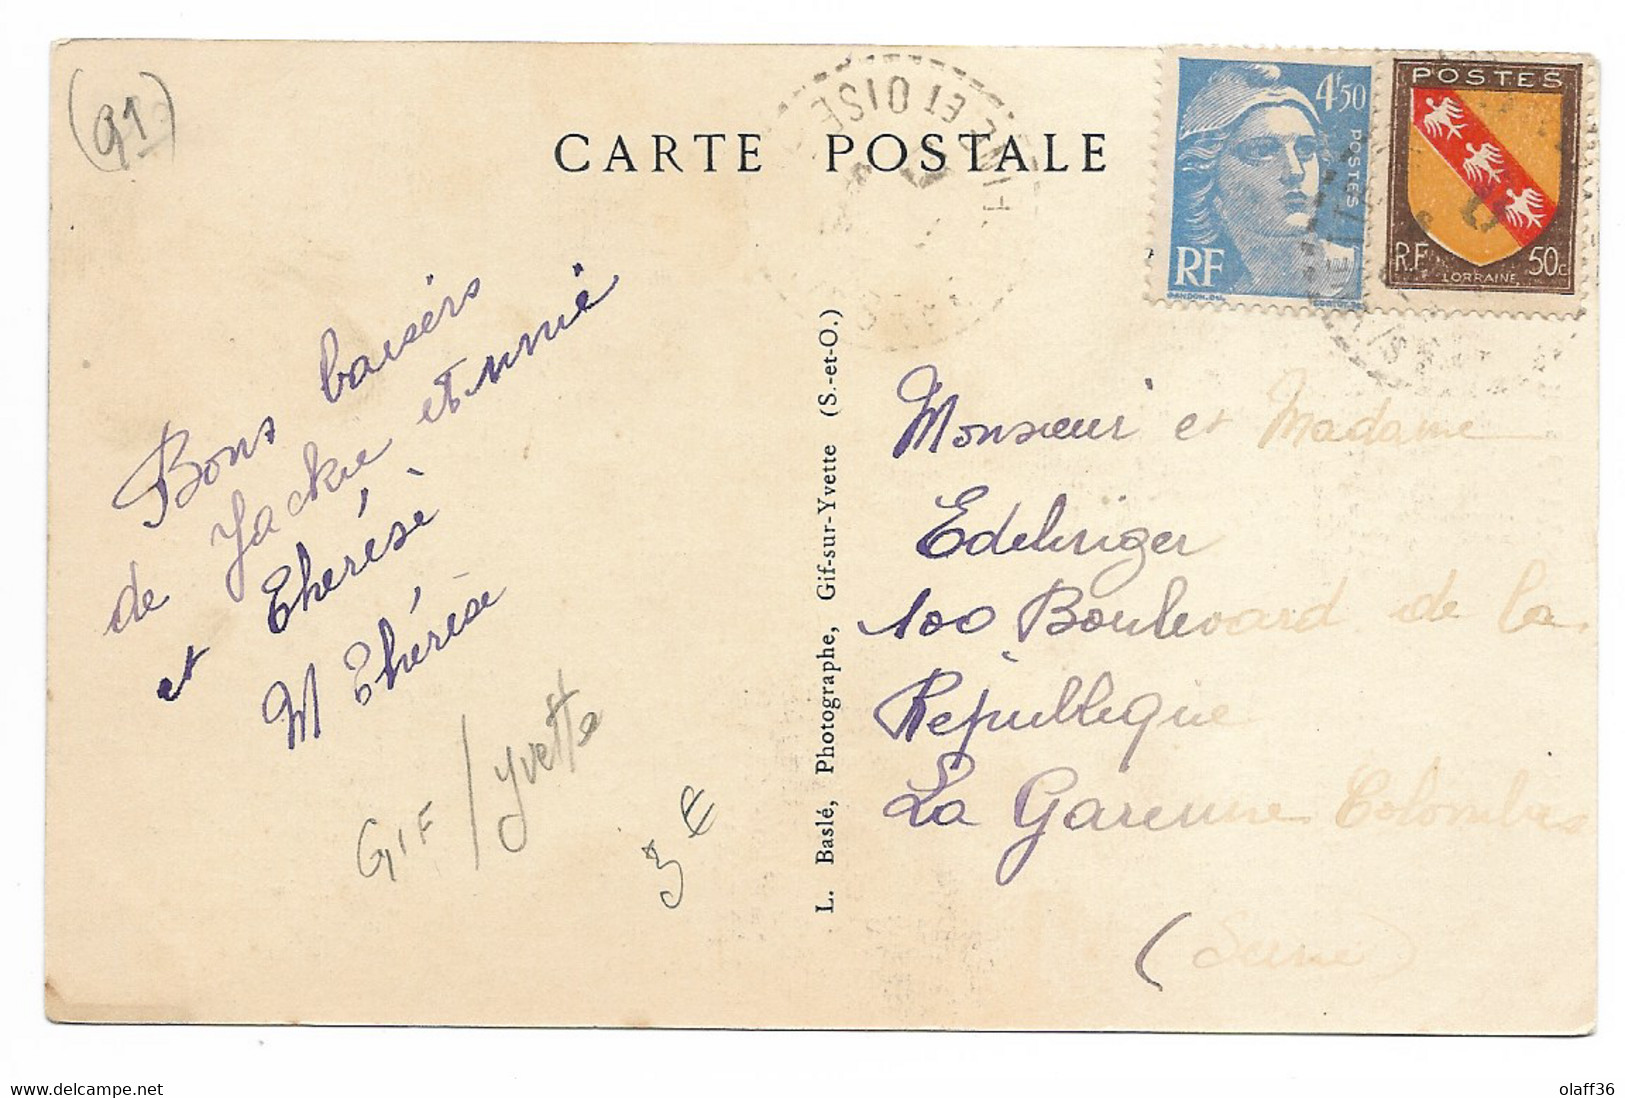 (91)
CARTE POSTALE
4F50
POSTES
RF
POSTES
R.F
50c
LORRAINE
SEINE ET OISE
Bons baisers
de Jackie et
et Thérèse
M Thérèse
GIF / Yvette
3 €
L. Baslé, Photographe, Gif-sur-Yvette (S.-et-O.)
Monsieur et Madame
100 Boulevard de la
République
La Garenne Colombes
(Seine)
delcampe.net
olaff36